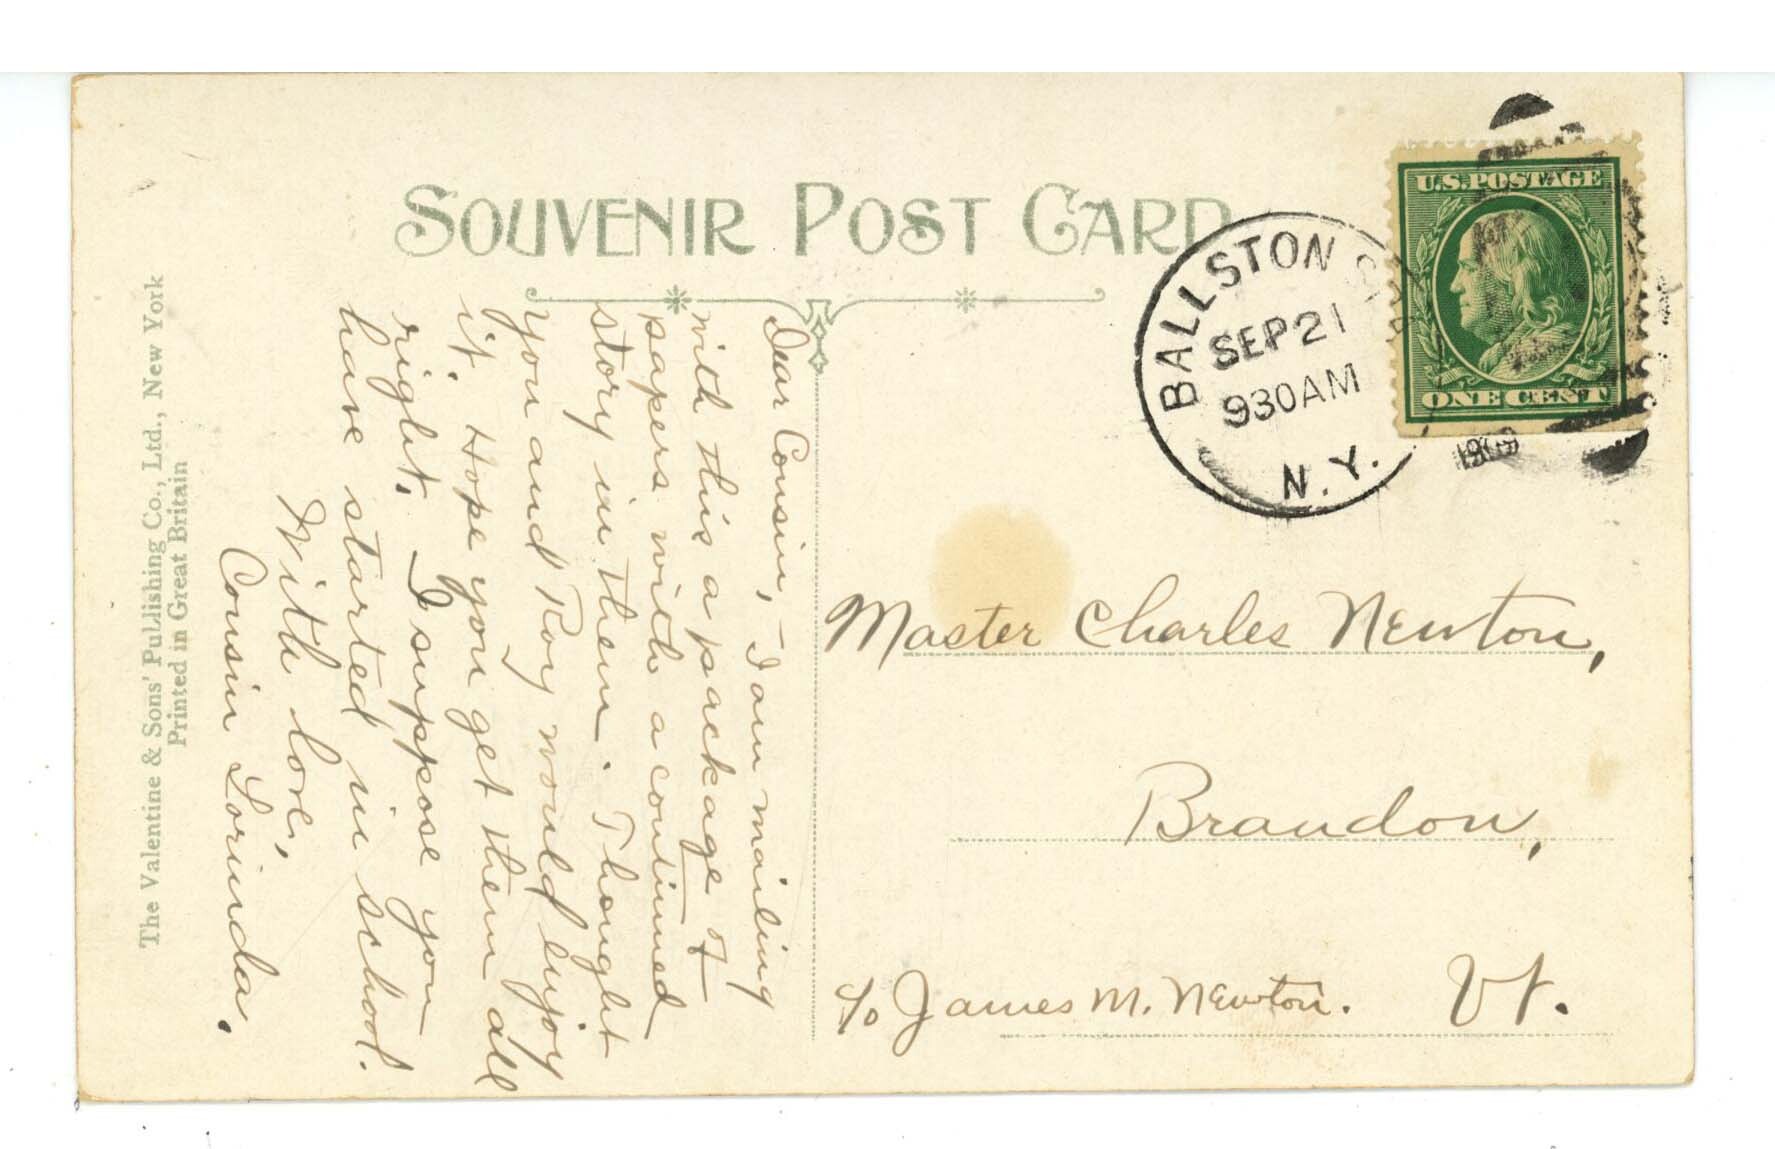 SOUVENIR POST CARD
BALLSTON SPA
SEP 21
930 AM
1909
N.Y.
U.S. POSTAGE
ONE CENT
Dear Cousin, - I am mailing
with this a package of
papers with a continued
story in them. Thought
you and Roy would enjoy
it. Hope you get them all
right. I suppose you
have started in school.
With love,
Cousin Lorinda.
Master Charles Newton,
Brandon,
c/o James M. Newton. Vt.
The Valentine & Sons' Publishing Co., Ltd., New York
Printed in Great Britain